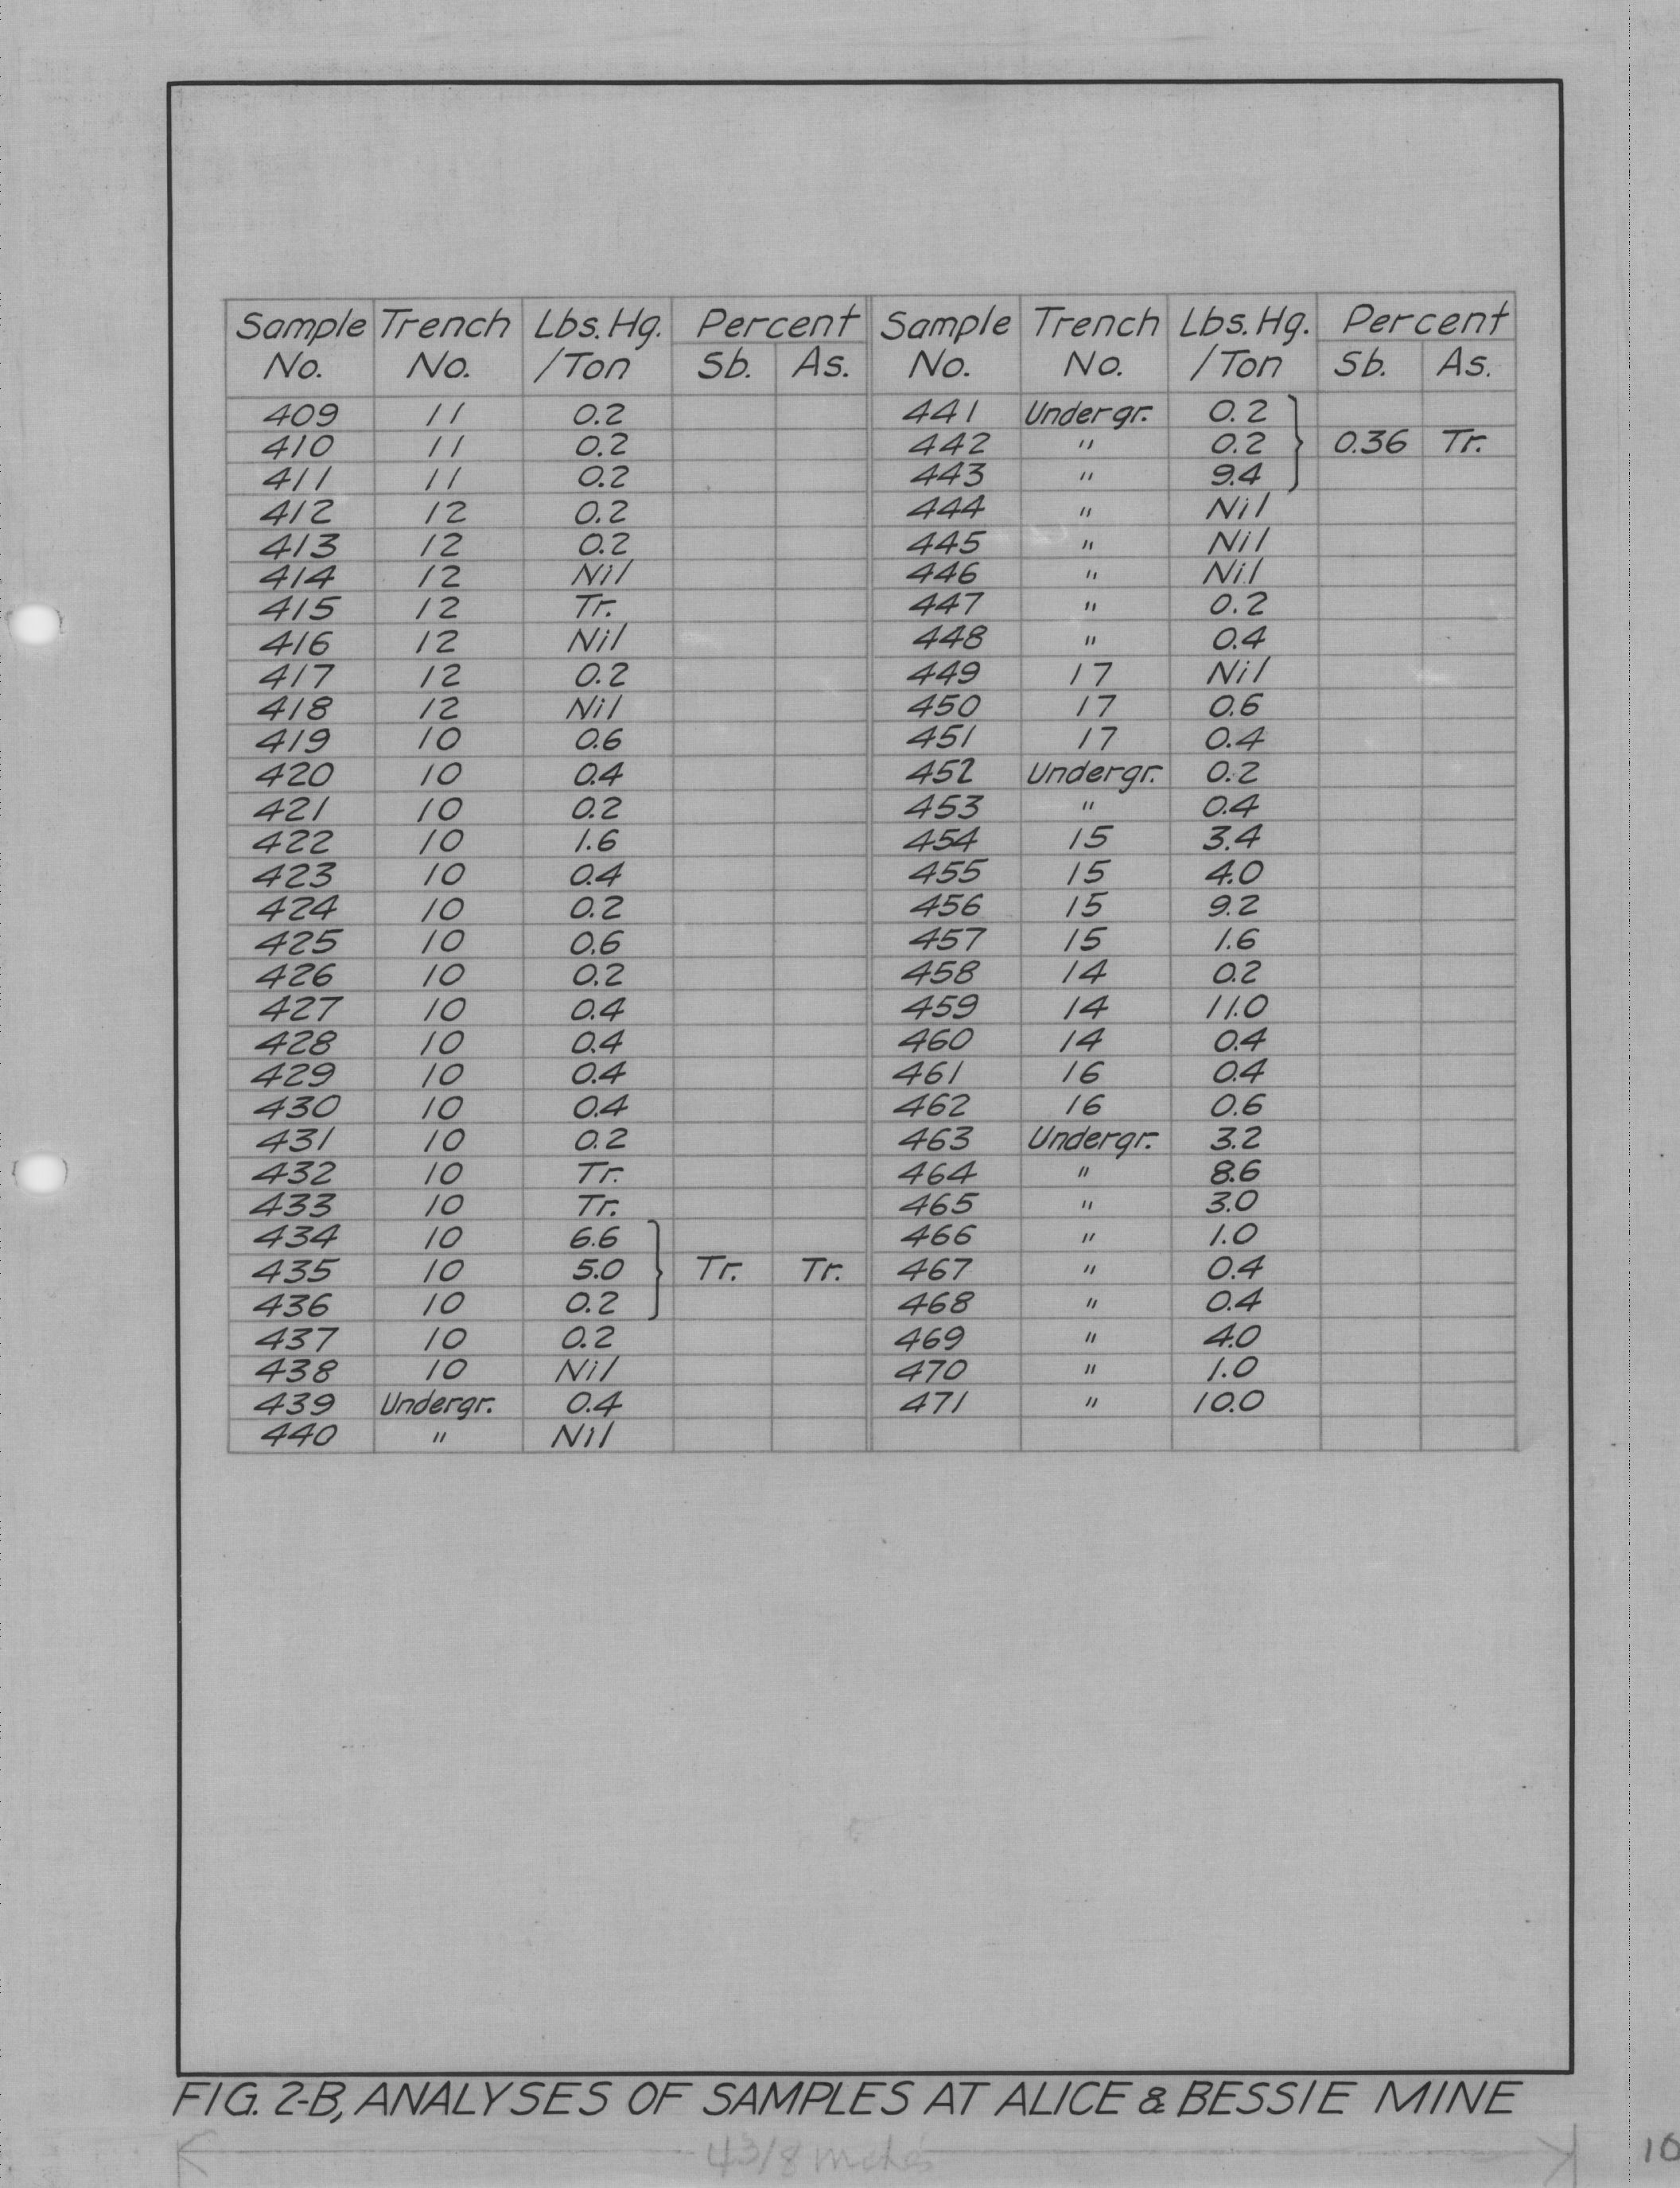 Sample Trench Lbs. Hg. Percent Sample Trench Lbs. Hg. Percent
No. No. /Ton Sb. As. No. No. /Ton Sb. As.
409 11 0.2 441 Undergr. 0.2
410 11 0.2 442 " 0.2 0.36 Tr.
411 11 0.2 443 " 9.4
412 12 0.2 444 " Nil
413 12 0.2 445 " Nil
414 12 Nil 446 " Nil
415 12 Tr. 447 " 0.2
416 12 Nil 448 " 0.4
417 12 0.2 449 17 Nil
418 12 Nil 450 17 0.6
419 10 0.6 451 17 0.4
420 10 0.4 452 Undergr. 0.2
421 10 0.2 453 " 0.4
422 10 1.6 454 15 3.4
423 10 0.4 455 15 4.0
424 10 0.2 456 15 9.2
425 10 0.6 457 15 1.6
426 10 0.2 458 14 0.2
427 10 0.4 459 14 11.0
428 10 0.4 460 14 0.4
429 10 0.4 461 16 0.4
430 10 0.4 462 16 0.6
431 10 0.2 463 Undergr. 3.2
432 10 Tr. 464 " 8.6
433 10 Tr. 465 " 3.0
434 10 6.6 466 " 1.0
435 10 5.0 Tr. Tr. 467 " 0.4
436 10 0.2 468 " 0.4
437 10 0.2 469 " 4.0
438 10 Nil 470 " 1.0
439 Undergr. 0.4 471 " 10.0
440 " Nil
FIG. 2-B, ANALYSES OF SAMPLES AT ALICE & BESSIE MINE
4 3/8 inches
10